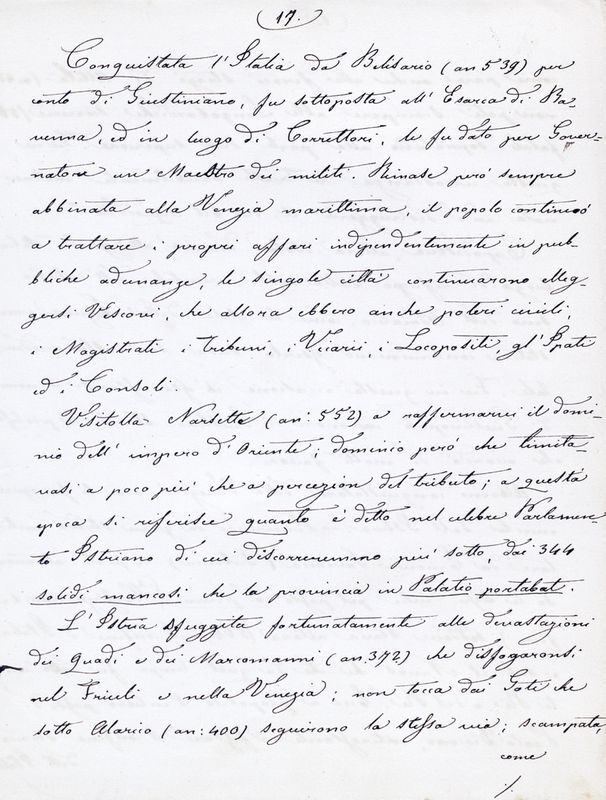 (17.)
Conquistata l'Italia da Belisario (an 539) per
conto di Giustiniano, fu sottoposta all' Esarca di Ra-
venna, ed in luogo di Correttori, le fu dato per Gover-
natore un Maestro dei militi. Rimase però sempre
abbinata alla Venezia marittima, il popolo continuò
a trattare i propri affari indipendentemente in pub-
bliche adunanze, le singole città continuarono Aleg-
gersi Vescovi, che allora ebbero anche poteri civili,
i Magistrati i tribuni, i Vicarii, i Locopositi, gl'
ed i Consoli.
Visitolla Narsette (an: 552) a raffermarvi il domi-
nio dell' impero d'Oriente; dominio però che limita-
vasi a poco più che a percezion del tributo; a questa
epoca si riferisce quanto è detto nel celebre Parlamen-
to Istriano di cui discorreremmo più sotto, dai 344
solidi mancosi che la provincia in Palatio portabat.
L'Istria sfuggita fortunatamente alle devastazioni
dei Quadi e dei Marcomanni (an: 372) che disfogaronsi
nel Friuli e nella Venezia; non tocca dai Goti che
sotto Alarico (an: 400) seguirono la stessa via; scampata,
come
./.